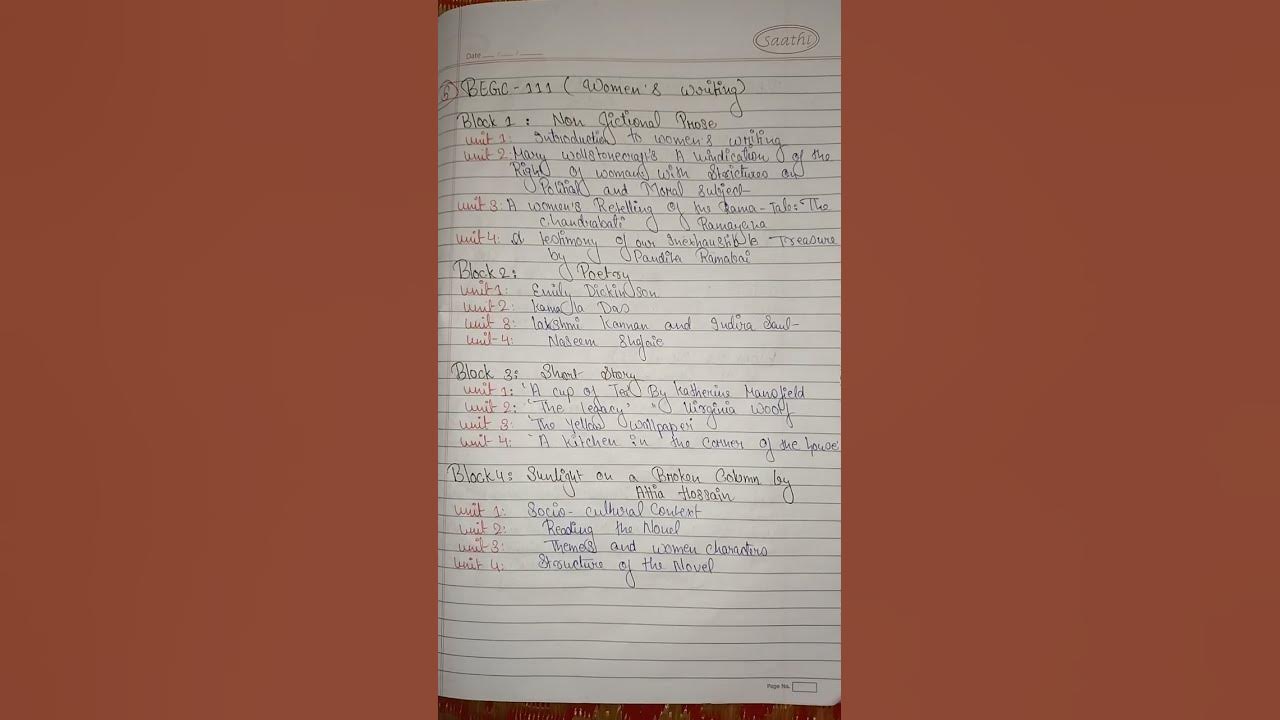 saathi
Date
5 BEGC-111 ( Women's writing)
Block 1 : Non fictional Prose
unit 1: Introduction to women's writing
unit 2: Mary wollstonecraft's A windication of the
Right of woman with Strictures on
Political and Moral subject
unit 3: A women's Retelling of the Rama-Tale: The
Chandrabati Ramayana
unit 4: A testimony of our Inexhaustible Treasure
by Pandita Ramabai
Block 2: Poetry
unit 1: Emily Dickinson
unit 2: kamala Das
unit 3: lakshmi kannan and Indira Sant
unit-4: Naseem Shafaie
Block 3: Short Story
unit 1: 'A cup of Tea By Katherine Mansfield
unit 2: 'The legacy' " Virginia woolf
unit 3 'The yellow wallpaper
unit 4: 'A kitchen in the corner of the house'
Block 4: Sunlight on a Broken Column by
Attia Hossain
unit 1: Socio-cultural Context
unit 2: Reading the Novel
unit 3: Theme(s) and women characters
unit 4: Structure of the Novel
Page No.